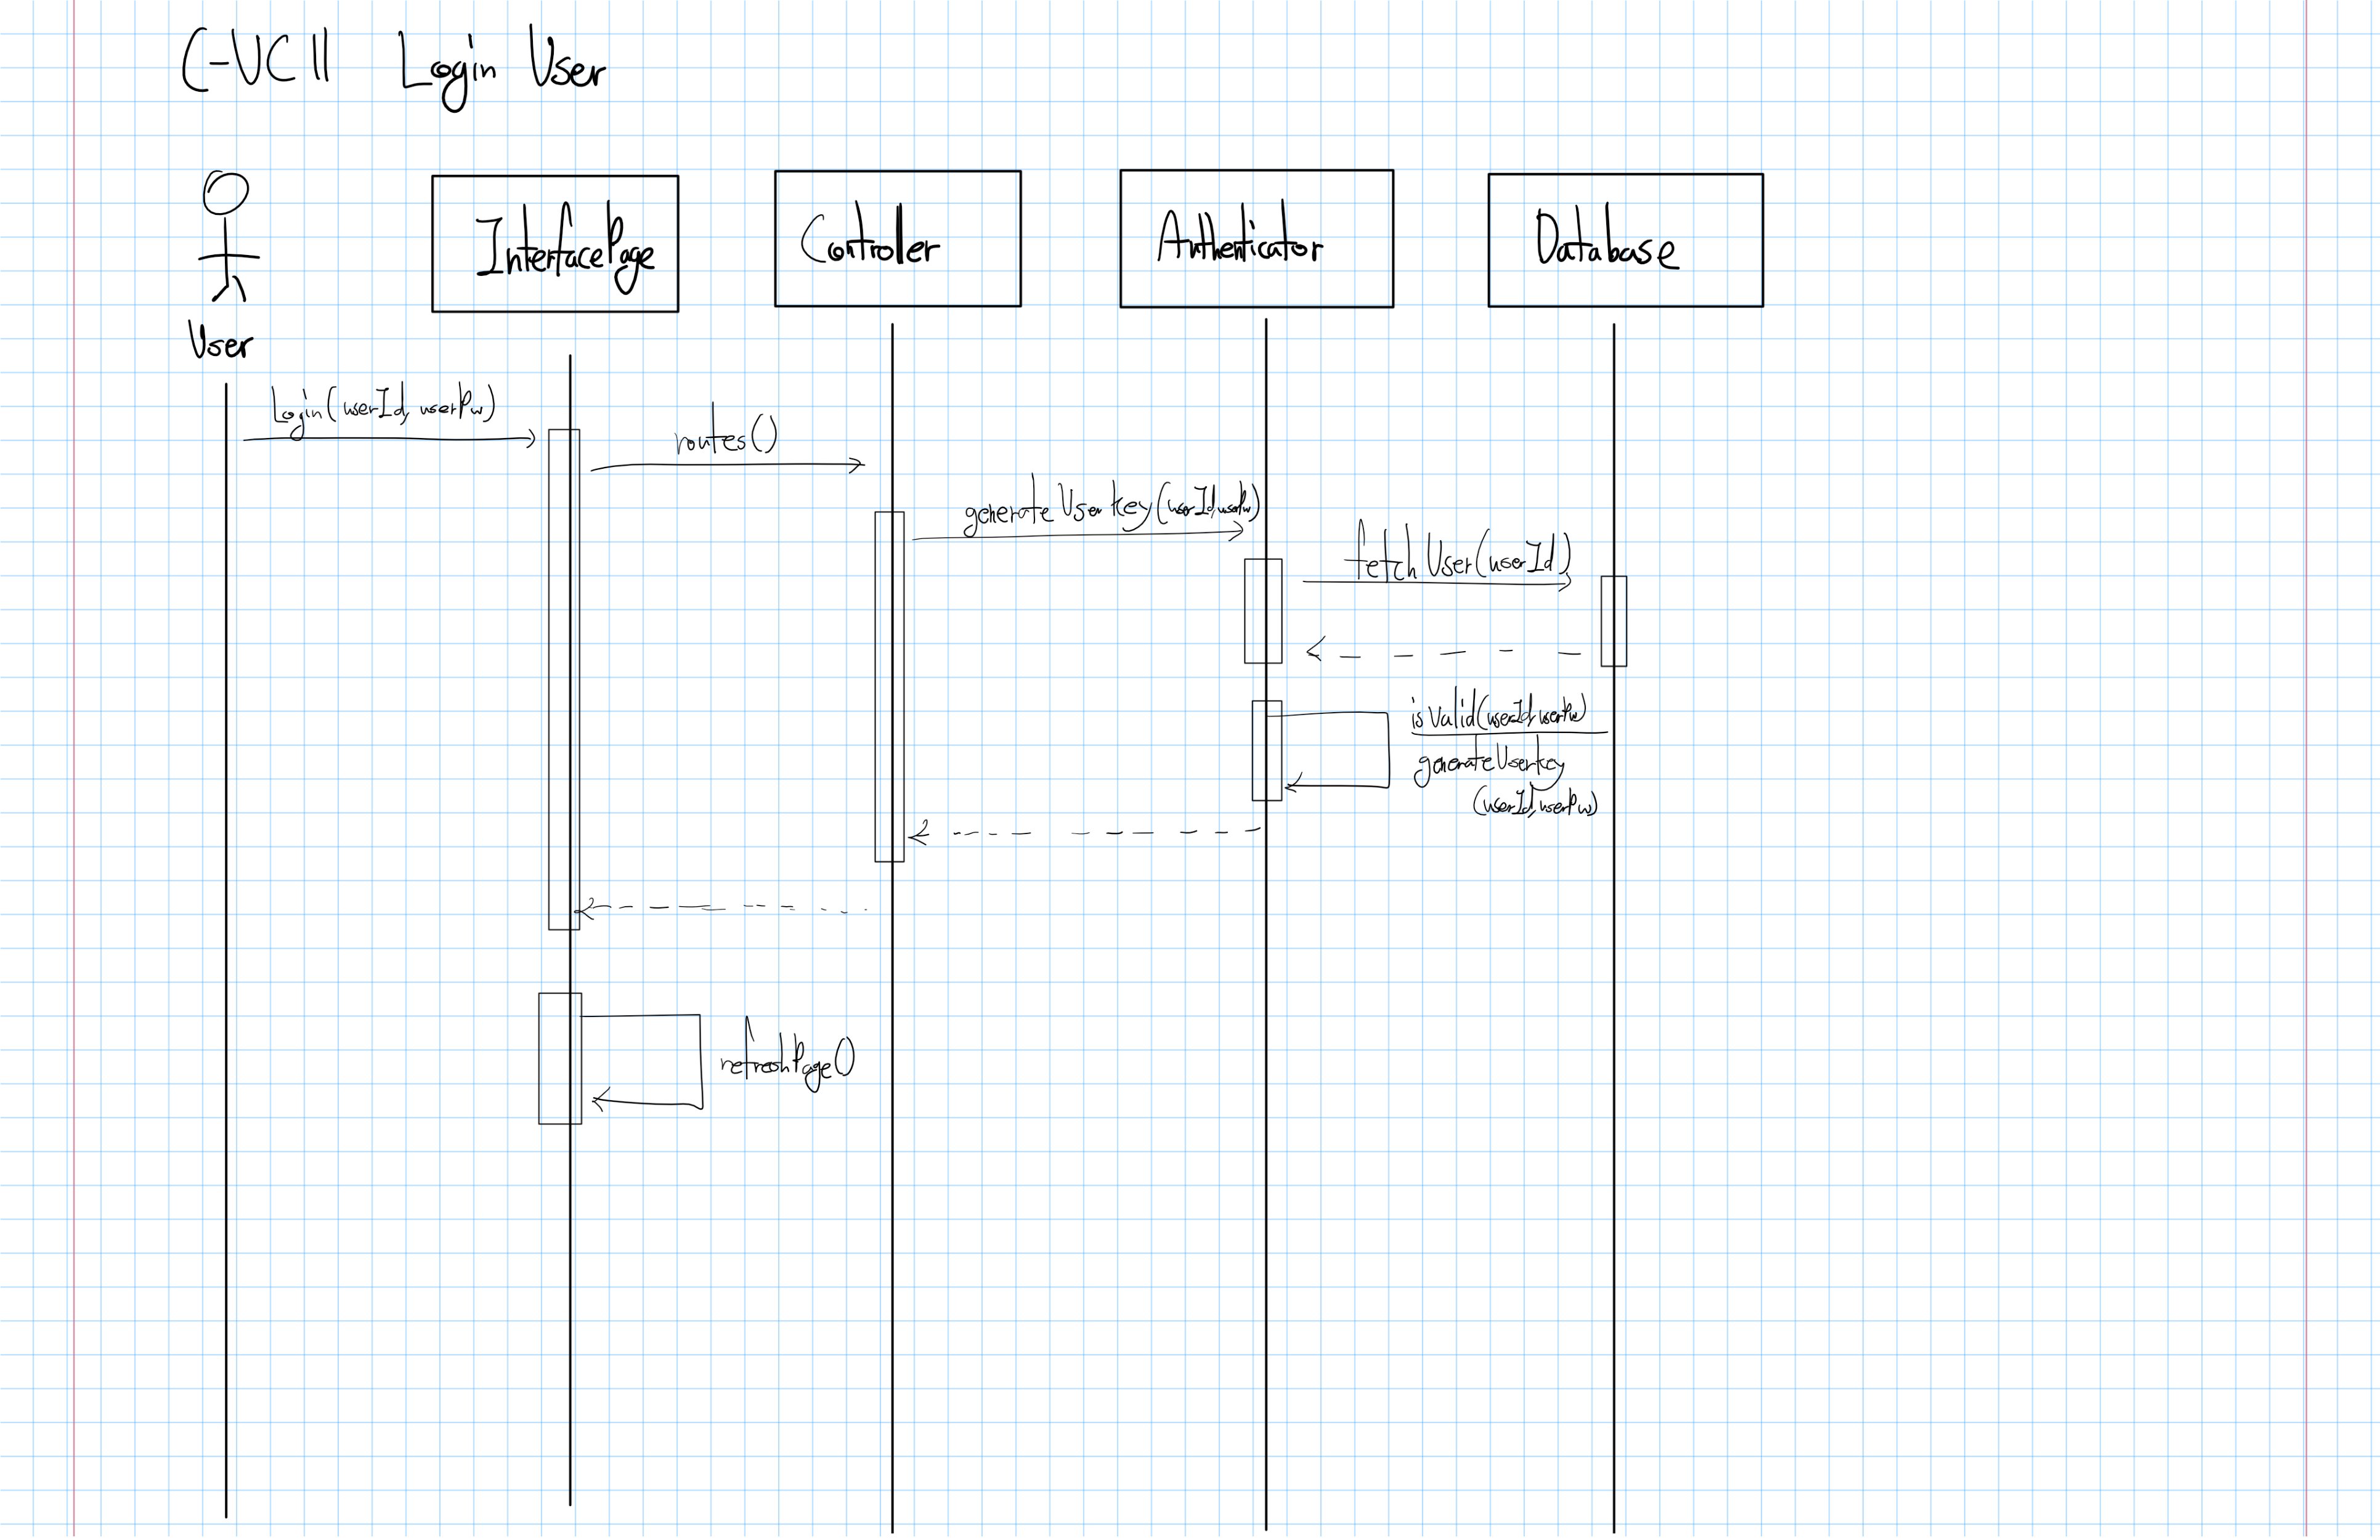 C-UC11 Login User
User
InterfacePage
Controller
Authenticator
Database
Login(userId, userPw)
routes()
generateUserkey(userId,userPw)
fetchUser(userId)
isValid(userId,userPw)
generateUserkey
(userId,userPw)
refreshPage()